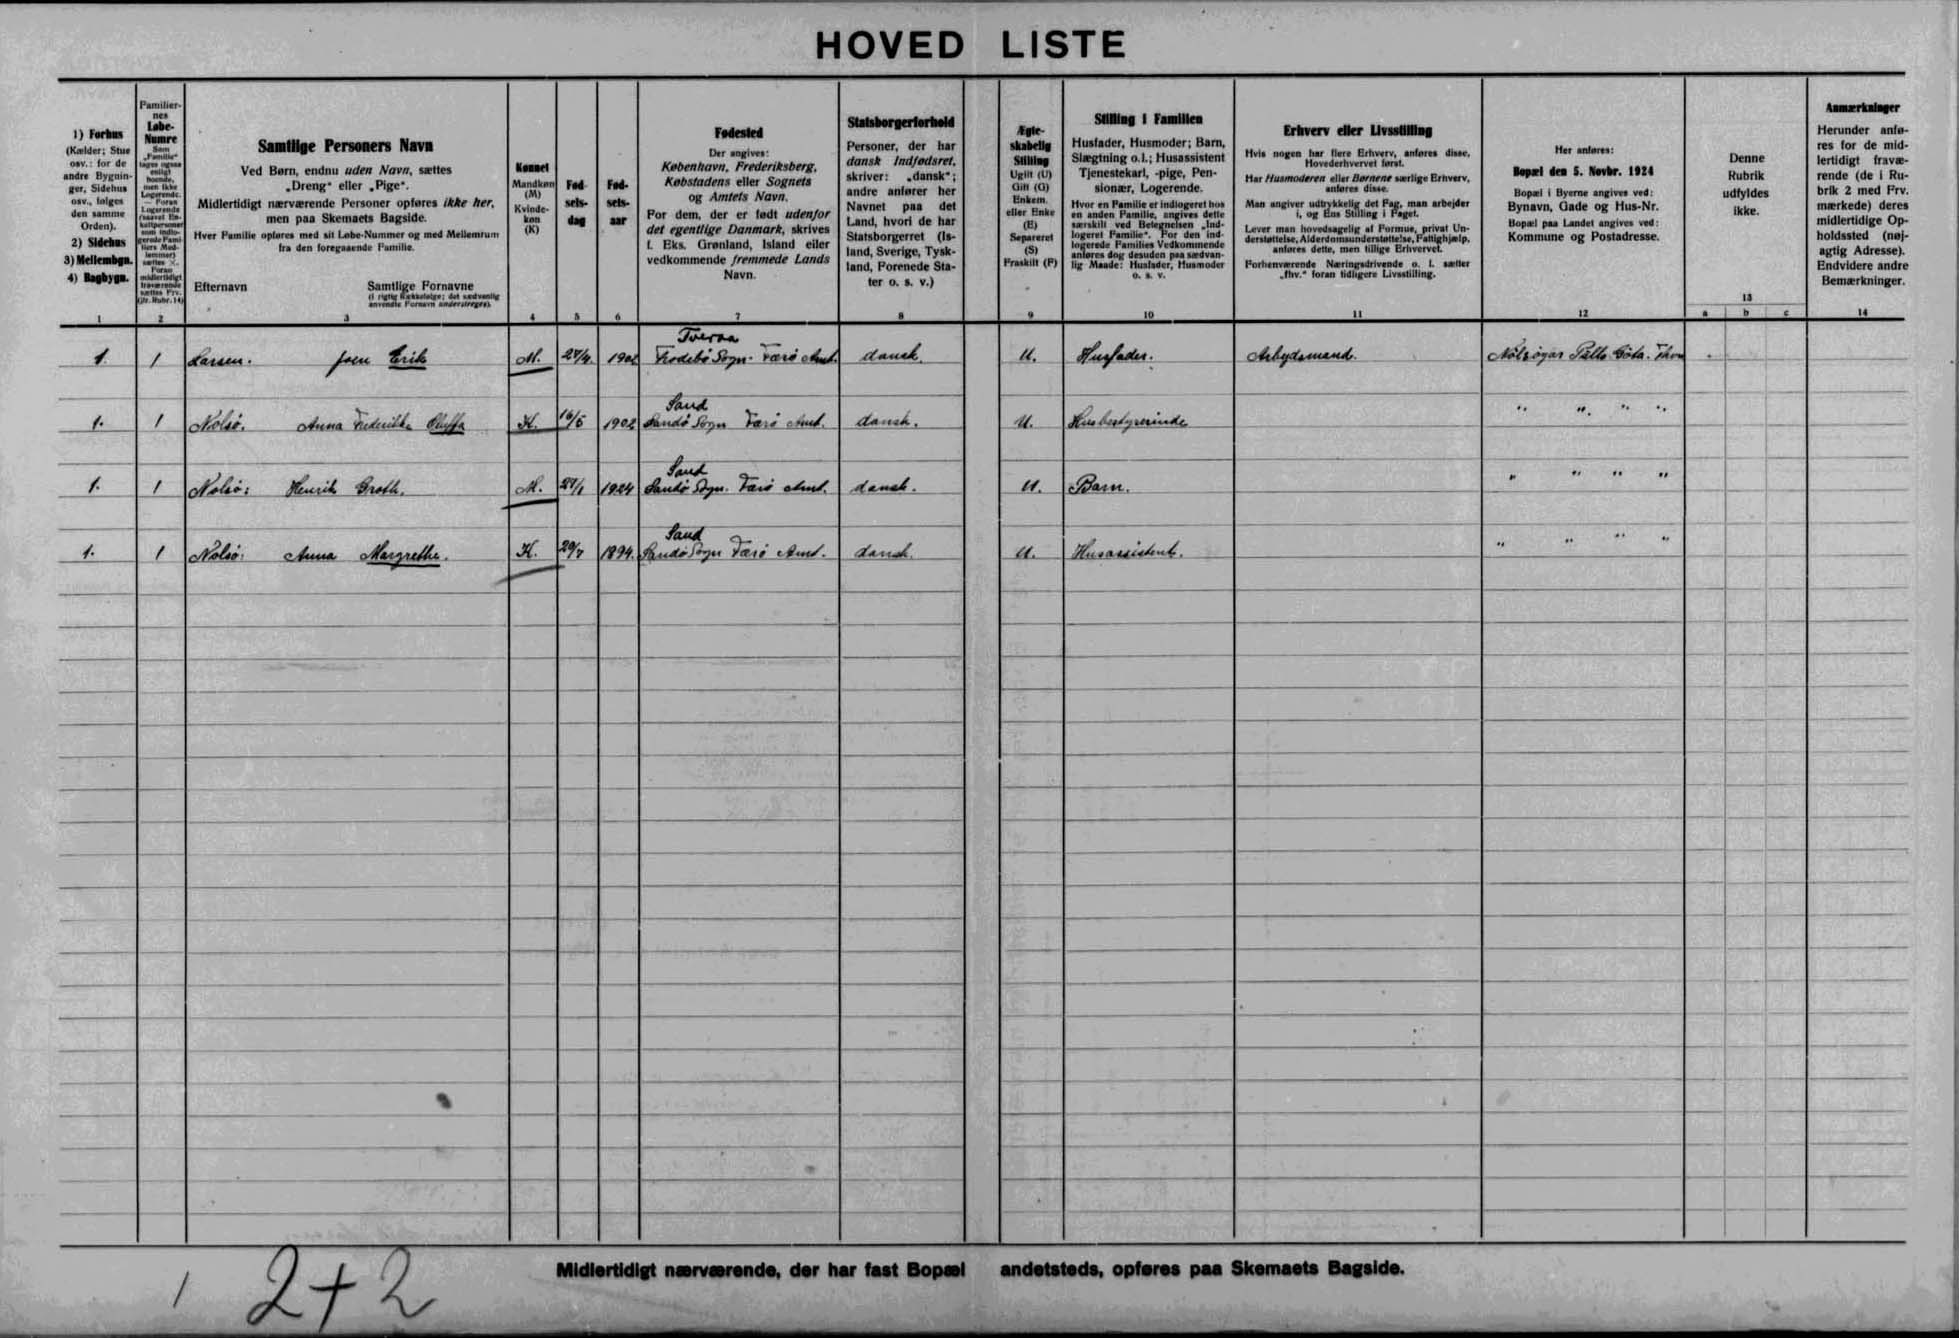 HOVED LISTE
1) Forhus
(Kælder; Stue
osv.: for de
andre Bygnin-
ger, Sidehus
osv., følges
den samme
Orden).
2) Sidehus
3) Mellembgn.
4) Bagbygn.
Familier-
nes
Løbe-
Numre
Som
„Familie"
tages ogsaa
enligt
boende,
men ikke
Logerende.
— Foran
Logerende
(saavel En-
keltpersoner
som indlo-
gerede Fami
liers Med-
lemmer)
sættes ×.
Foran
midlertidigt
fraværende
sættes Frv.
(jfr. Rubr. 14)
Samtlige Personers Navn
Ved Børn, endnu uden Navn, sættes
„Dreng" eller „Pige".
Midlertidigt nærværende Personer opføres ikke her,
men paa Skemaets Bagside.
Hver Familie opføres med sit Løbe-Nummer og med Mellemrum
fra den foregaaende Familie.
Efternavn
Samtlige Fornavne
(i rigtig Rækkefølge; det sædvanlig
anvendte Fornavn understreges).
Kønnet
Mandkøn
(M)
Kvinde-
køn
(K)
Fød-
sels-
dag
Fød-
sels-
aar
Fødested
Der angives:
København, Frederiksberg,
Købstadens eller Sognets
og Amtets Navn.
For dem, der er født udenfor
det egentlige Danmark, skrives
f. Eks. Grønland, Island eller
vedkommende fremmede Lands
Navn.
Statsborgerforhold
Personer, der har
dansk Indfødsret,
skriver: „dansk";
andre anfører her
Navnet paa det
Land, hvori de har
Statsborgerret (Is-
land, Sverige, Tysk-
land, Forenede Sta-
ter o. s. v.)
Ægte-
skabelig
Stilling
Ugift (U)
Gift (G)
Enkem.
eller Enke
(E)
Separeret
(S)
Fraskilt (F)
Stilling i Familien
Husfader, Husmoder; Barn,
Slægtning o.l.; Husassistent
Tjenestekarl, -pige, Pen-
sionær, Logerende.
Hvor en Familie er indlogeret hos
en anden Familie, angives dette
særskilt ved Betegnelsen „Ind-
logeret Familie". For den ind-
logerede Families Vedkommende
anføres dog desuden paa sædvan-
lig Maade: Husfader, Husmoder
o. s. v.
Erhverv eller Livsstilling
Hvis nogen har flere Erhverv, anføres disse,
Hovederhvervet først.
Har Husmoderen eller Børnene særlige Erhverv,
anføres disse.
Man angiver udtrykkelig det Fag, man arbejder
i, og Ens Stilling i Faget.
Lever man hovedsagelig af Formue, privat Un-
derstøttelse, Alderdomsunderstøttelse, Fattighjælp,
anføres dette, men tillige Erhvervet.
Forhenværende Næringsdrivende o. l. sætter
„fhv." foran tidligere Livsstilling.
Her anføres:
Bopæl den 5. Novbr. 1924
Bopæl i Byerne angives ved:
Bynavn, Gade og Hus-Nr.
Bopæl paa Landet angives ved:
Kommune og Postadresse.
Denne
Rubrik
udfyldes
ikke.
Anmærkninger
Herunder anfø-
res for de mid-
lertidigt fravæ-
rende (de i Ru-
brik 2 med Frv.
mærkede) deres
midlertidige Op-
holdssted (nøj-
agtig Adresse).
Endvidere andre
Bemærkninger.
1 2 3 4 5 6 7 8 9 10 11 12 13 a b c 14
Tveraa
1. 1 Larsen. Joen Erik M. 27/4. 1902 Frodebø Sogn. Færø Amt. dansk. U. Husfader. Arbejdsmand. Nólsoyar Palls Göta. Thvn
Sand
1. 1 Nolsø. Anna Frederikke Oluffa K. 16/5 1902 Sandø Sogn Færø Amt. dansk. U. Husbestyrerinde " " " "
Sand
1. 1 Nolsø: Henrik Groth. M. 27/1 1924 Sandø Sogn. Færø Amt. dansk. U. Barn. " " " "
Sand
1. 1 Nolsø: Anna Margrethe. K. 29/7 1894. Sandø Sogn Færø Amt. dansk. U. Husassistent. " " " "
Midlertidigt nærværende, der har fast Bopæl andetsteds, opføres paa Skemaets Bagside.
1 2+2